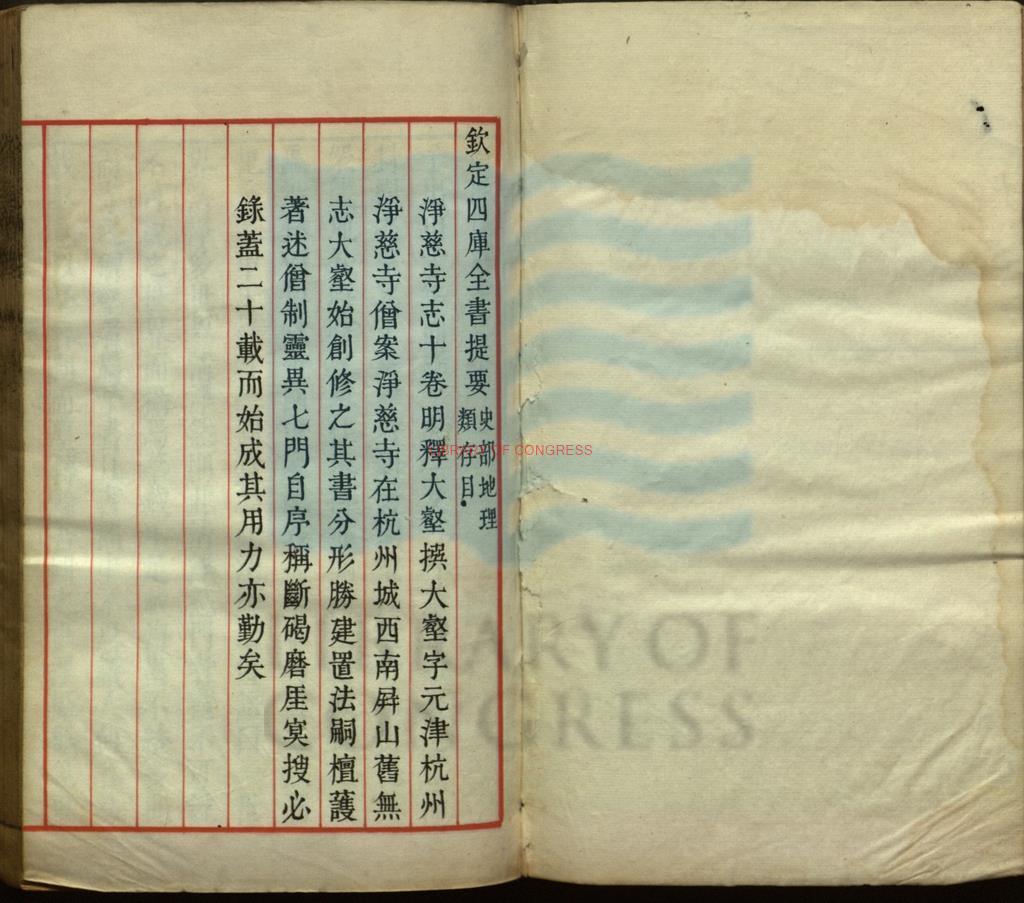 欽定四庫全書提要史部地理類存目
淨慈寺志十卷明釋大壑撰大壑字元津杭州
淨慈寺僧案淨慈寺在杭州城西南屛山舊無
志大壑始創修之其書分形勝建置法嗣檀護
著述僧制靈異七門自序稱斷碣磨厓冥搜必
錄蓋二十載而始成其用力亦勤矣
LIBRARY OF CONGRESS
LIBRARY OF
CONGRESS